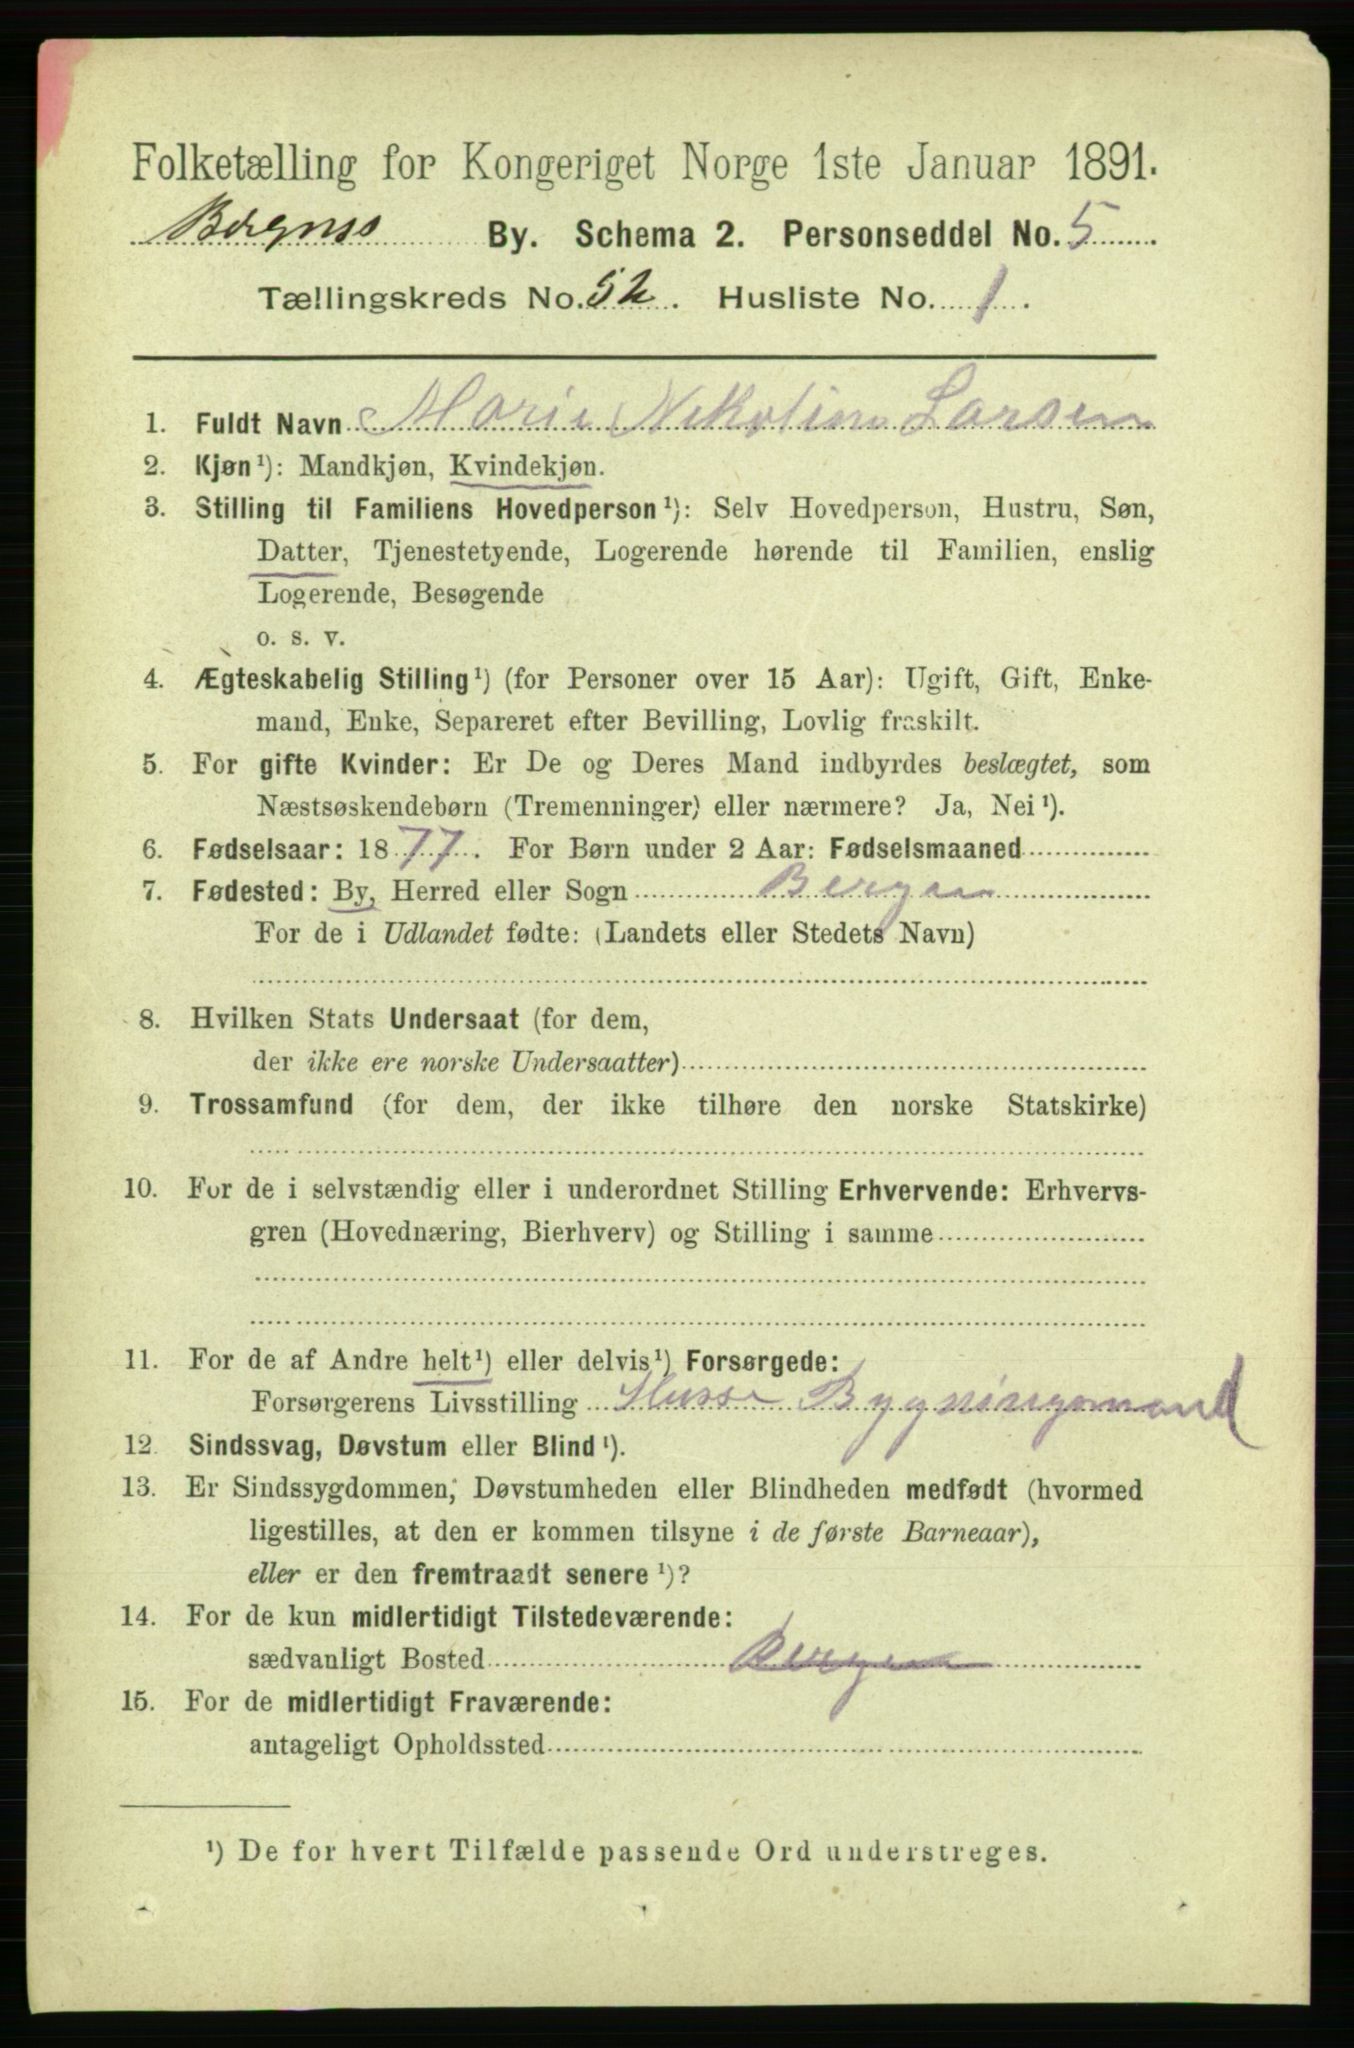 Folketælling for Kongeriget Norge 1ste Januar 1891.
Bergens By. Schema 2. Personseddel No. 5
Tællingskreds No. 52. Husliste No. 1.
1. Fuldt Navn Marie Nikoline Larsen
2. Kjøn¹): Mandkjøn, Kvindekjøn.
3. Stilling til Familiens Hovedperson¹): Selv Hovedperson, Hustru, Søn,
Datter, Tjenestetyende, Logerende hørende til Familien, enslig
Logerende, Besøgende
o. s. v.
4. Ægteskabelig Stilling¹) (for Personer over 15 Aar): Ugift, Gift, Enke-
mand, Enke, Separeret efter Bevilling, Lovlig fraskilt.
5. For gifte Kvinder: Er De og Deres Mand indbyrdes beslægtet, som
Næstsøskendebørn (Tremenninger) eller nærmere? Ja, Nei¹).
6. Fødselsaar: 1877. For Børn under 2 Aar: Fødselsmaaned
7. Fødested: By, Herred eller Sogn Bergen
For de i Udlandet fødte: (Landets eller Stedets Navn)
8. Hvilken Stats Undersaat (for dem,
der ikke ere norske Undersaatter)
9. Trossamfund (for dem, der ikke tilhøre den norske Statskirke)
10. For de i selvstændig eller i underordnet Stilling Erhvervende: Erhvervs-
gren (Hovednæring, Bierhverv) og Stilling i samme
11. For de af Andre helt¹) eller delvis¹) Forsørgede:
Forsørgerens Livsstilling Husse Bygningsmand
12. Sindssvag, Døvstum eller Blind¹).
13. Er Sindssygdommen, Døvstumheden eller Blindheden medfødt (hvormed
ligestilles, at den er kommen tilsyne i de første Barneaar),
eller er den fremtraadt senere¹)?
14. For de kun midlertidigt Tilstedeværende:
sædvanligt Bosted Bergen
15. For de midlertidigt Fraværende:
antageligt Opholdssted
¹) De for hvert Tilfælde passende Ord understreges.